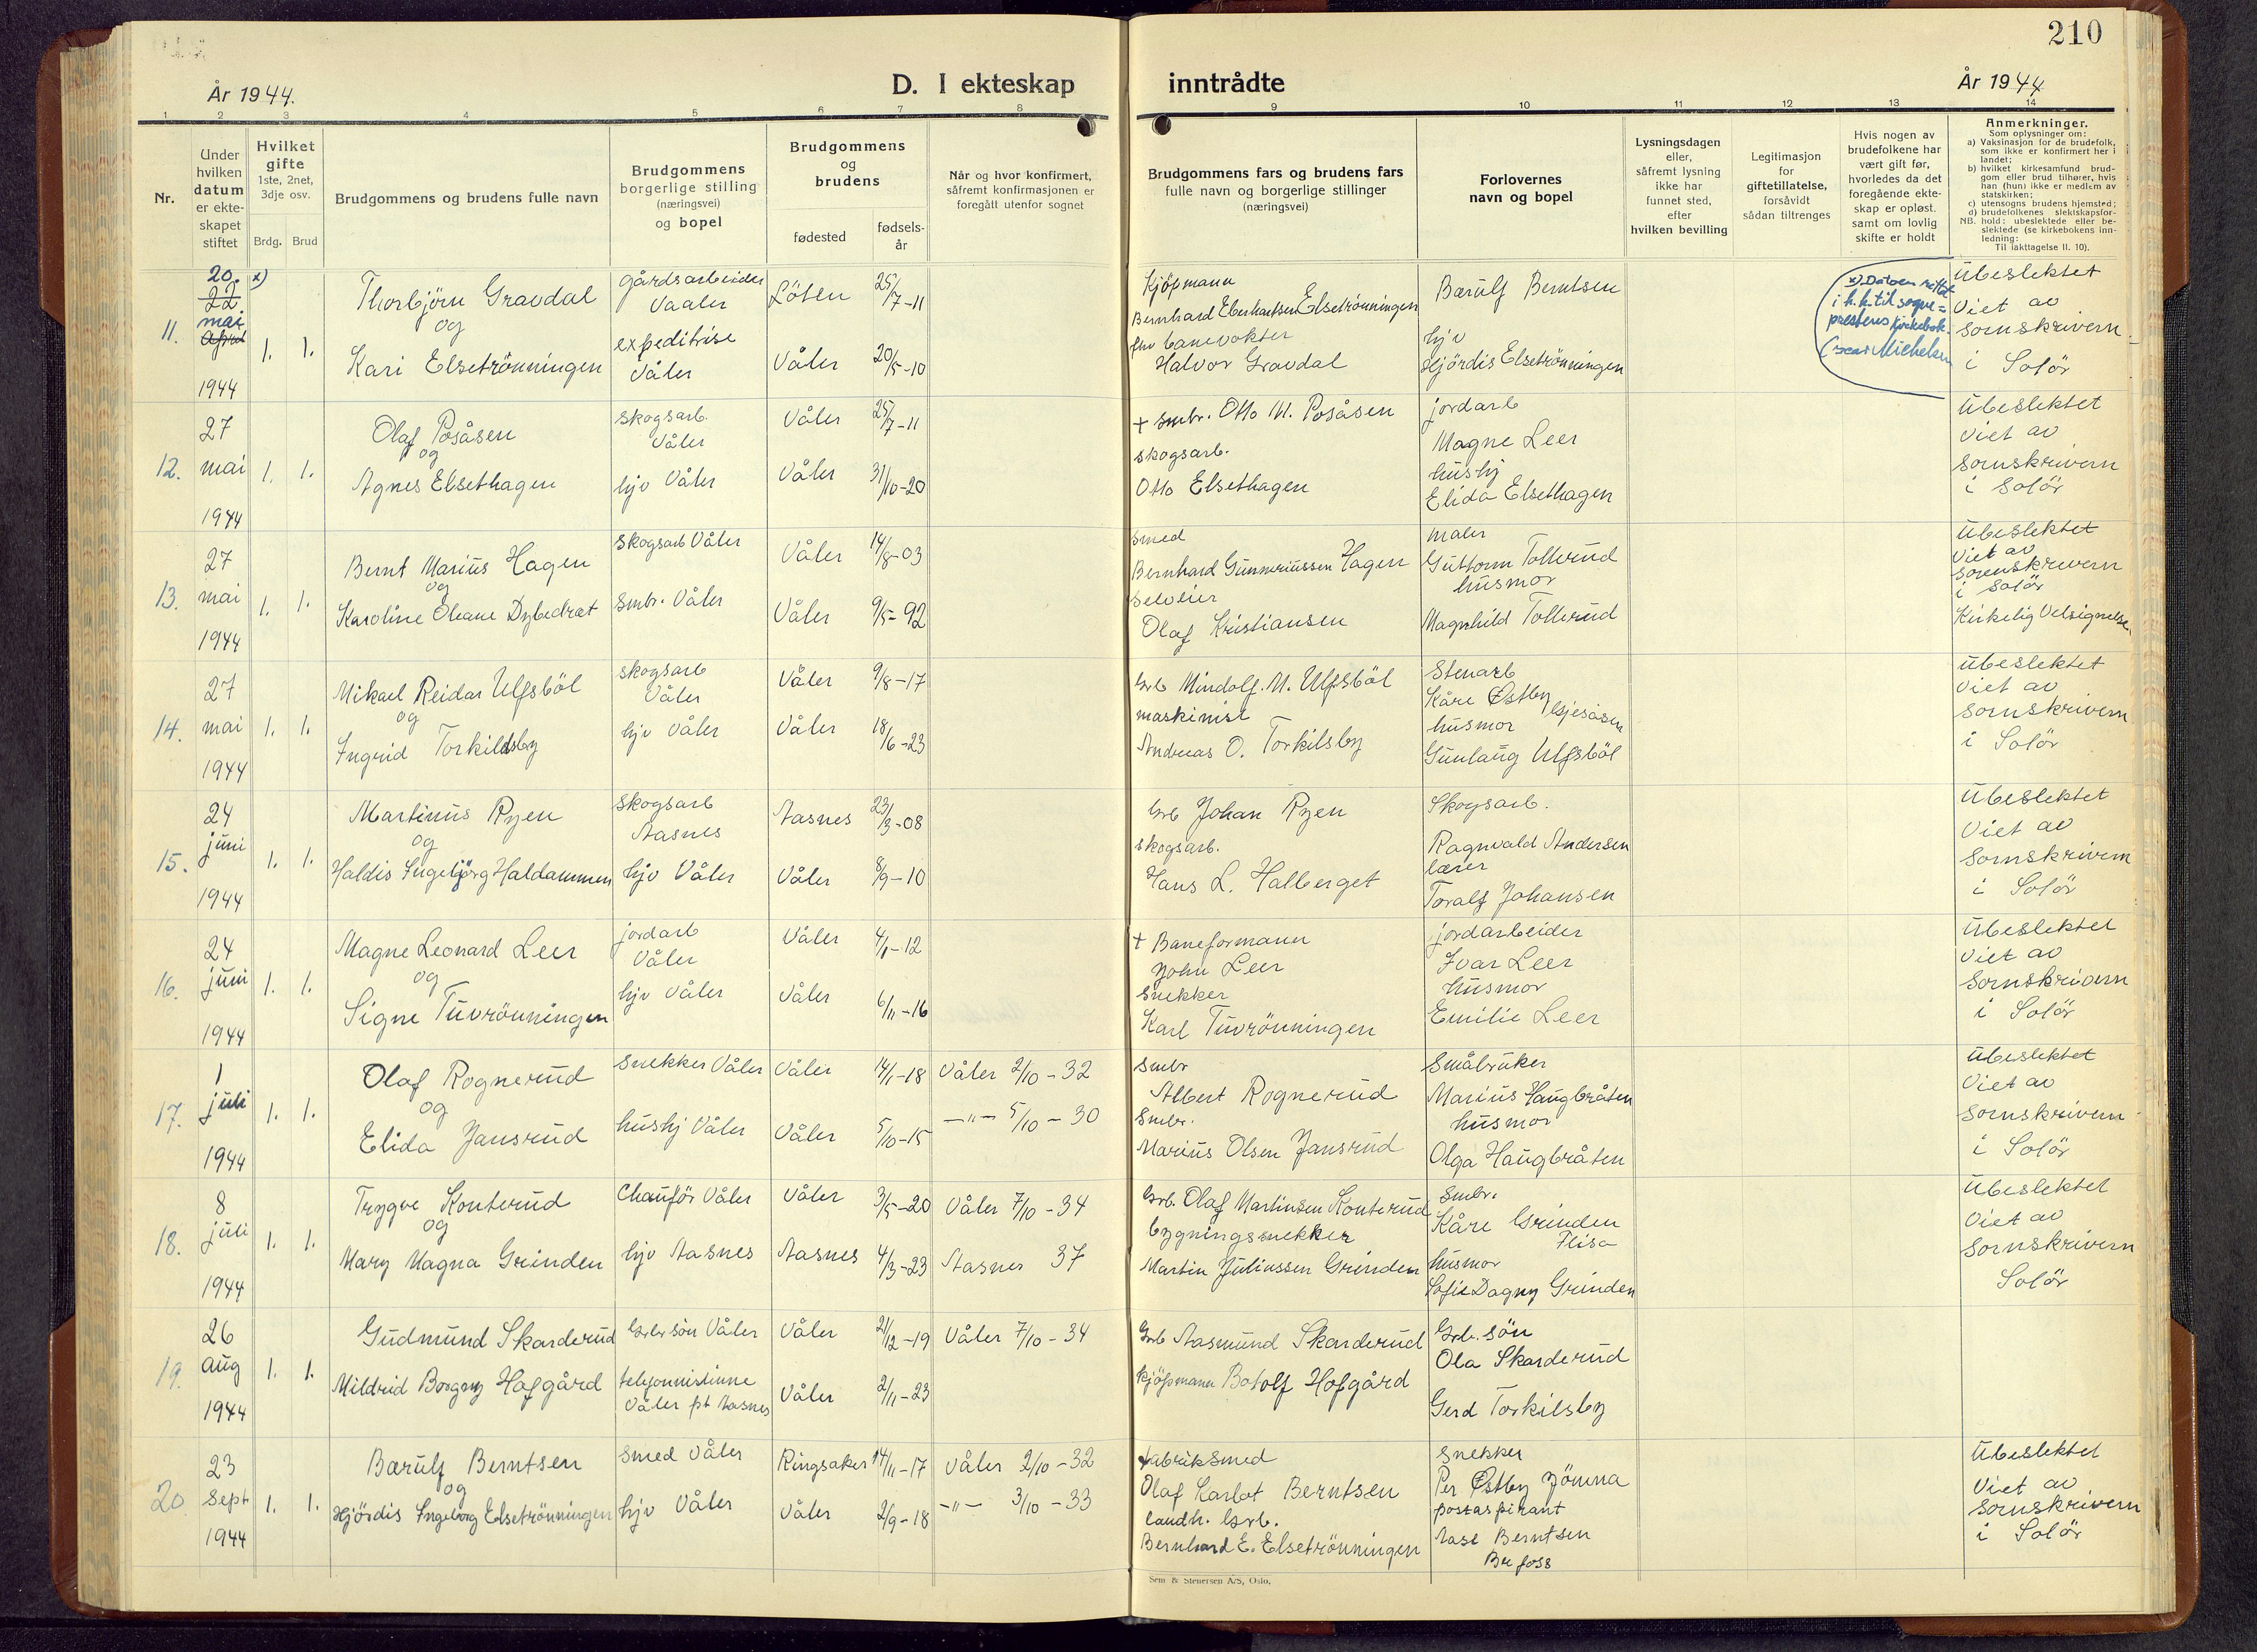 210
År 1944.
D. I ekteskap inntrådte
År 1944
1 2 3 4 5 6 7 8 9 10 11 12 13 14
Nr.
Under hvilken datum er ekteskapet stiftet
Hvilket gifte
1ste, 2net, 3dje osv.
Brdg. Brud
Brudgommens og brudens fulle navn
Brudgommens borgerlige stilling (næringsvei) og bopel
Brudgommens og brudens
fødested
fødselsår
Når og hvor konfirmert, såfremt konfirmasjonen er foregått utenfor sognet
Brudgommens fars og brudens fars fulle navn og borgerlige stillinger (næringsvei)
Forlovernes navn og bopel
Lysningsdagen eller, såfremt lysning ikke har funnet sted, efter hvilken bevilling
Legitimasjon for giftetillatelse, forsåvidt sådan tiltrenges
Hvis nogen av brudefolkene har vært gift før, hvorledes da det foregående ekteskap er opløst. samt om lovlig skifte er holdt
Anmerkninger.
Som oplysninger om:
a) Vaksinasjon for de brudefolk, som ikke er konfirmert her i landet;
b) hvilket kirkesamfund brudgom eller brud tilhører, hvis han (hun) ikke er medlem av statskirken;
c) utensogns brudens hjemsted;
d) brudefolkenes slektskapsforhold: ubeslektede eller beslektede (se kirkebokens innledning:
NB. Til iakttagelse II. 10).
11. 20. x) 22 mai April 1944 1. 1.
Thorbjörn Gravdal gårdsarbeider Vaaler Löten 25/7-11
og
Kari Elsetrönningen expeditrise Våler Våler 20/5-10
Kjöpmann
Bernhard Eberhartsen Elsetrönningen
fhv banevokter
Halvor Gravdal
Bærulf Berntsen
hjv
Hjördis Elsetrönningen
x) Datoen rettet i h.h. til sogneprestens kirkebok.
Oscar Michelsen
Ubeslektet
Viet av
Sornskrivern
i Solör
12. 27 mai 1944 1. 1.
Olaf Posåsen skogsarb. Våler Våler 25/7-11
og
Agnes Elsethagen hjv Våler Våler 31/10-20
+ smbr. Otto M. Posåsen
skogsarb.
Otto Elsethagen
jordarb
Magne Leer
hushj
Elida Elsethagen
Ubeslektet
Viet av
Sornskrivern
i Solör
13. 27 mai 1944 1. 1.
Bernt Marius Hagen skogsarb Våler Våler 14/8-03
og
Karoline Oleane Dybedræt Smbr. Våler Våler 9/5-92
smed
Bernhard Gunneriussen Hagen
Selveier
Olaf Kristiansen
maler
Guttorm Tollerud
husmor
Magnhild Tollerud
Ubeslektet
Viet av
Sorenskrivern
i Solör
Kirkelig Velsignelse.
14. 27 mai 1944 1. 1.
Mikael Reidar Ulfsböl skogsarb Våler Våler 9/8-17
og
Ingrid Torkildsby hjv Våler Våler 18/6-23
Grb Mindolf. M. Ulfsböl
maskinist
Andreas O. Torkilsby
Stenarb
Kåre Østby Gjesåsen
husmor
Gunlaug Ulfsböl
Ubeslektet
Viet av
Sornskrivern
i Solör
15. 24 juni 1944 1. 1.
Martinus Ryen skogsarb Aasnes Aasnes 23/3-08
og
Haldis Ingebjörg Haldammen hjv Våler Våler 8/9-10
Grb Johan Ryen
skogsarb.
Hans L. Halberget
Skogsarb.
Ragnvald Andersen
lærer
Toralf Johansen
Ubeslektet
Viet av
Sornskrivern
i Solör
16. 24 juni 1944 1. 1.
Magne Leonard Leer jordarb Våler Våler 4/1-12
og
Signe Tuvrönningen hjv Våler Våler 6/11-16
+ Baneformann
John Leer
Snekker
Karl Tuvrönningen
jordarbeider
Ivar Leer
husmor
Emilie Leer
Ubeslektet
Viet av
Sornskrivern
i Solör
17. 1 juli 1944 1. 1.
Olaf Rognerud Snekker Våler Våler 14/1-18 Våler 2/10-32
og
Elida Jansrud hushj Våler Våler 5/10-15 -"- 5/10-30
Smbr
Albert Rognerud
Smbr.
Marius Olsen Jansrud
Småbruker
Marius Haugbråten
husmor
Olga Haugbråten
Ubeslektet
Viet av
Sornskrivern
i Solör
18. 8 juli 1944 1. 1.
Trygve Konterud Chauför Våler Våler 3/5-20 Våler 7/10-34
og
Mary Magna Grinden hjv Aasnes Aasnes 4/3-23 Aasnes 37
Grb. Olaf Martinsen Konterud
bygningssnekker
Martin Juliussen Grinden
Smbr.
Kåre Grinden
Flisa
husmor
Sofie Dagny Grinden
Ubeslektet
Viet av
Sornskrivern
Solör
19. 26 aug 1944 1. 1.
Gudmund Skarderud Grbr sön Våler Våler 21/12-19 Våler 7/10-34
Mildrid Borgny Hofgård telefonnistinne Våler pt Aasnes Våler 2/11-23
Grb Aasmund Skarderud
kjöpmann Botolf Hofgård
Grb. sön
Ola Skarderud
Gerd Torkilsby
20. 23 Sept 1944 1. 1.
Bærulf Berntsen Smed Våler Ringsaker 14/11-17 Våler 2/10-32
og
Hjördis Ingeborg Elsetrönningen hjv Våler Våler 2/9-18 -"- 3/10-33
Fabriksmed
Olaf Karlot Berntsen
landh. Grb.
Bernhard E. Elsetrönningen
Snekker
Per Østby Jömna
postaspirant
Aase Berntsen
Ubeslektet
Viet av
Sornskrivern
i Solör
Sem & Stenersen A/S, Oslo.